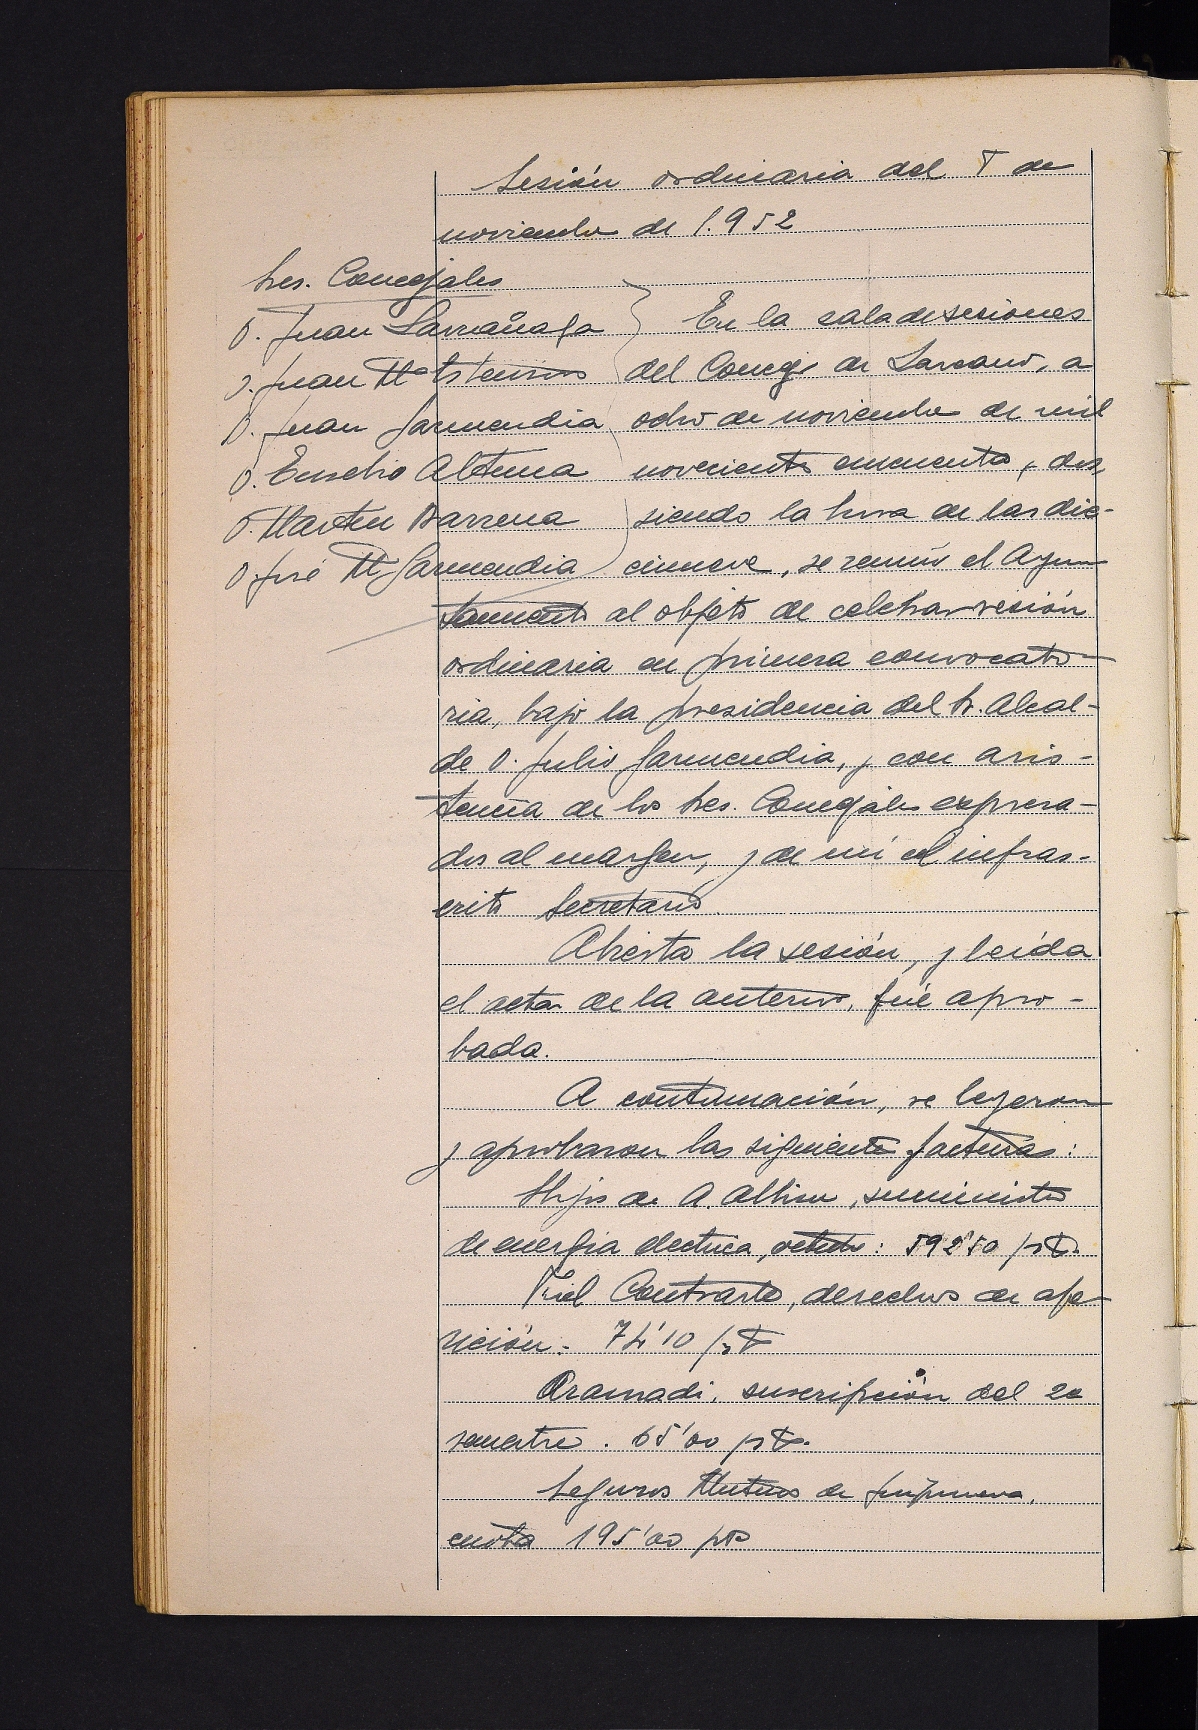 Sesión ordinaria del 8 de
noviembre de 1.952
Sres. Concejales
D. Juan Larrañaga
D. Juan Mª
D. Juan Garmendia
D. Eusebio Altuna
D. Martin Barrena
D. José Mª Garmendia
En la sala de sesiones
del Concejo de Lazcano, a
ocho de noviembre de mil
novecientos cincuenta y dos,
siendo la hora de las die-
cinueve, se reunió el Ayun
tamiento al objeto de celebrar sesión
ordinaria en primera convocato-
ria, bajo la presidencia del Sr. Alcal-
de D. Julio Garmendia, y con asis-
tencia de los Sres. Concejales expresa-
dos al margen, y de mí el infras-
crito Secretario.
Abierta la sesión, y leída
el acta de la anterior, fué apro-
bada.
A continuación, se leyeron
y aprobaron las siguientes facturas:
Hijos de A. Albisu, suministro
de energia electrica, octubre: 592'50 pts.
Fiel Contraste, derechos de afe-
rición. 74'10 pts
Aramadi, suscripción del 2º
semestre. 65'00 pts.
Seguros Mutuos de Guipuzcoa,
cuota 195'00 pts